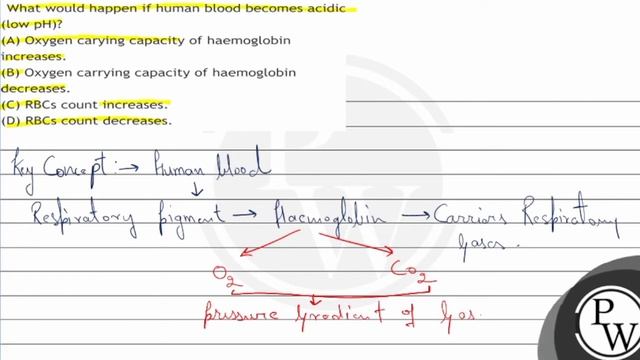 What would happen if human blood becomes acidic
(low pH)?
(A) Oxygen carying capacity of haemoglobin
increases.
(B) Oxygen carrying capacity of haemoglobin
decreases.
(C) RBCs count increases.
(D) RBCs count decreases.
Key Concept :→ Human blood
↓
Respiratory pigment → Haemoglobin → Carriers Respiratory
gases.
O2 CO2
pressure Gradient of Gas.
PW
PW